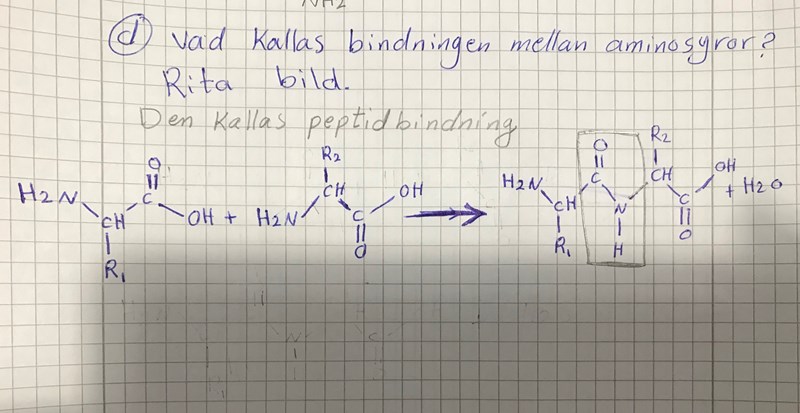 NH2
d) Vad kallas bindningen mellan aminosyror?
Rita bild.
Den kallas peptidbindning
H2N CH R1 C O OH + H2N CH R2 C O OH → H2N CH R1 C O N H CH R2 C O OH + H2O